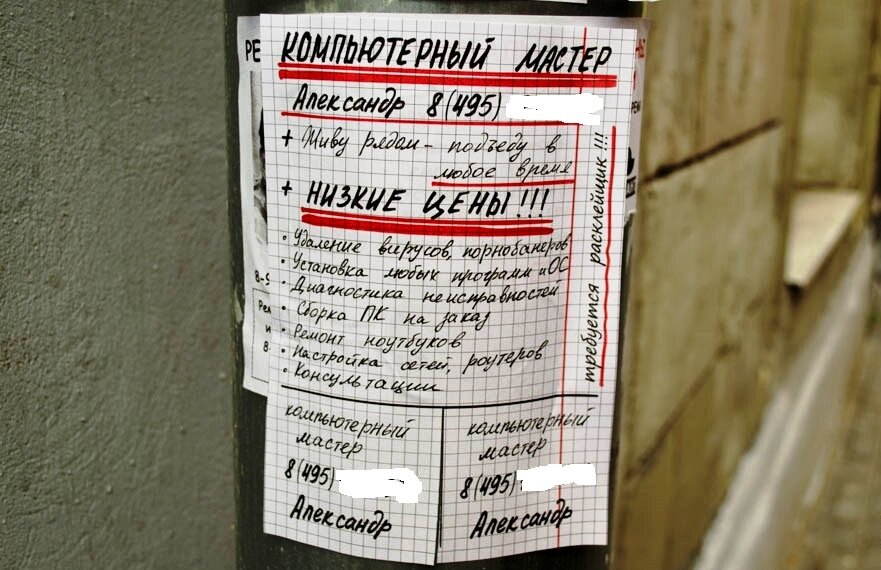 КОМПЬЮТЕРНЫЙ МАСТЕР
Александр 8(495)
+ Живу рядом - подъеду в
любое время
+ НИЗКИЕ ЦЕНЫ!!!
• Удаление вирусов, порнобанеров
• Установка любых программ и ОС
• Диагностика неисправностей
• Сборка ПК на заказ
• Ремонт ноутбуков
• Настройка сетей, роутеров
• Консультации
требуется расклейщик!!!
компьютерный
мастер
8(495)
Александр
компьютерный
мастер
8(495)
Александр